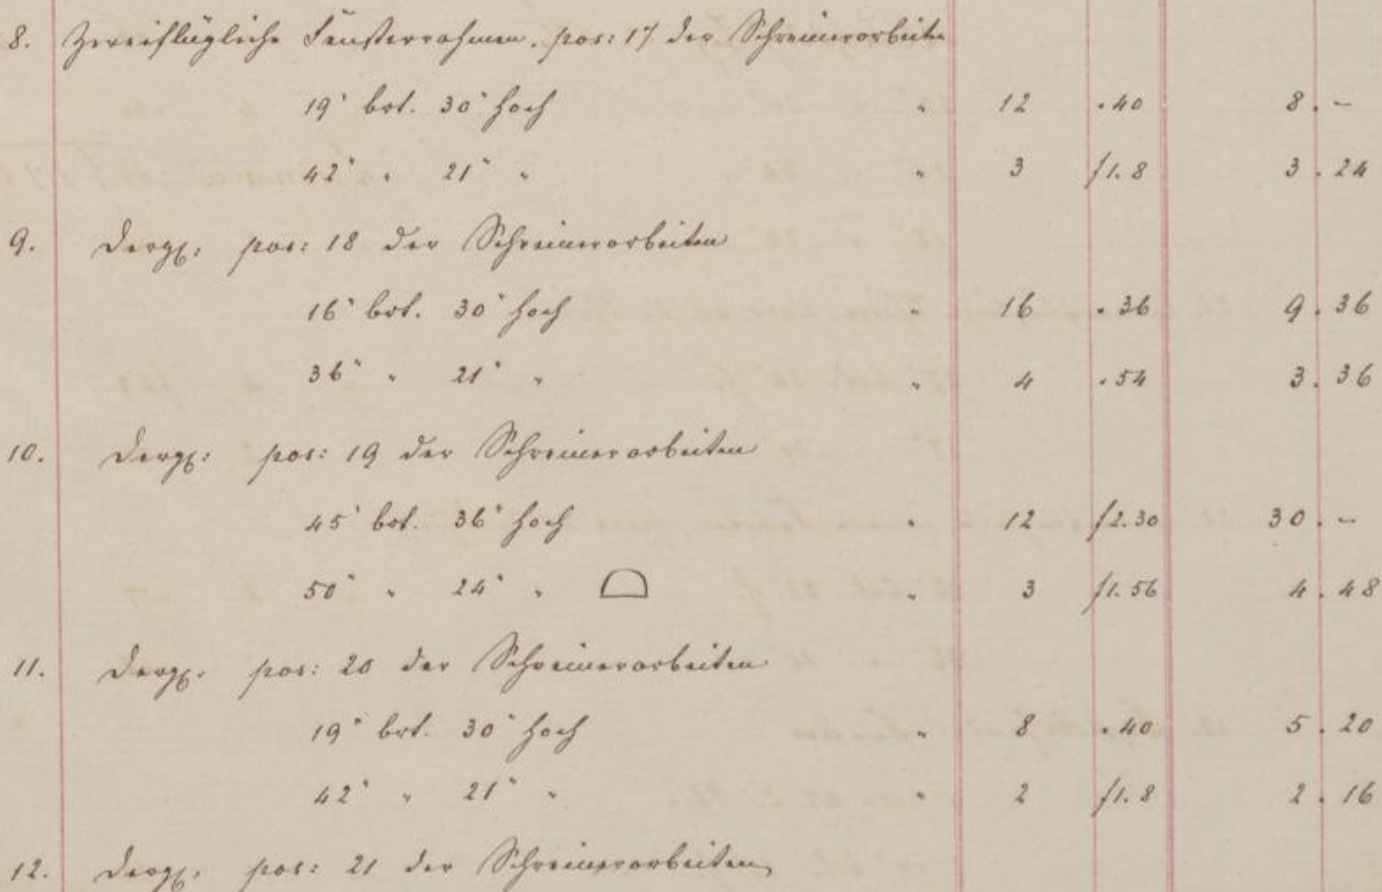 8. Zweiflügliche Fensterrahmen. pos: 17 der Schreinerarbeiten
19" brt. 30" hoch " 12 " 40 8 . -
42" " 21" " " 3 f1.8 3 . 24
9. Dergl. pos: 18 der Schreinerarbeiten
16" brt. 30" hoch " 16 " 36 9 . 36
36" " 21" " " 4 " 54 3 . 36
10. Dergl: pos: 19 der Schreinerarbeiten
45" brt. 36" hoch " 12 f2.30 30 . -
50" " 24" " " 3 f1.56 4 . 48
11. Dergl. pos: 20 der Schreinerarbeiten
19" brt. 30" hoch " 8 " 40 5 . 20
42" " 21" " " 2 f1.8 2 . 16
12. Dergl. pos: 21 der Schreinerarbeiten